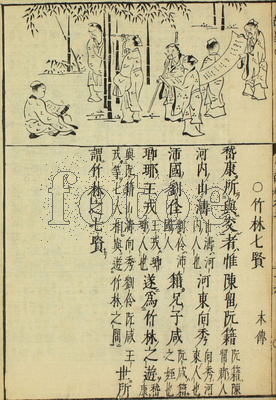 ○竹林七賢 本傳
嵇康所與交者惟陳留阮籍阮籍陳留人
河內山濤山濤河內人也河東向秀向秀河東人也
沛國劉伶劉伶沛國人籍兄子咸阮咸籍之姪也
瑯琊王戎王戎瑯琊人也遂為竹林之遊嵇康
與阮籍山濤向秀劉伶阮咸王戎等七人相與遊竹林之間世所
謂竹林之七賢
fotoe